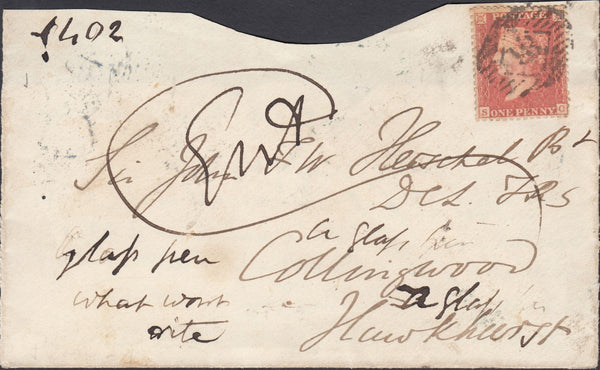 1402
POSTAGE
S G
ONE PENNY
Sir John F W Herschel Bt
DCL FRS
a glass pen
Collingwood
a glass
Hawkhurst
glass pen
what wont
rite